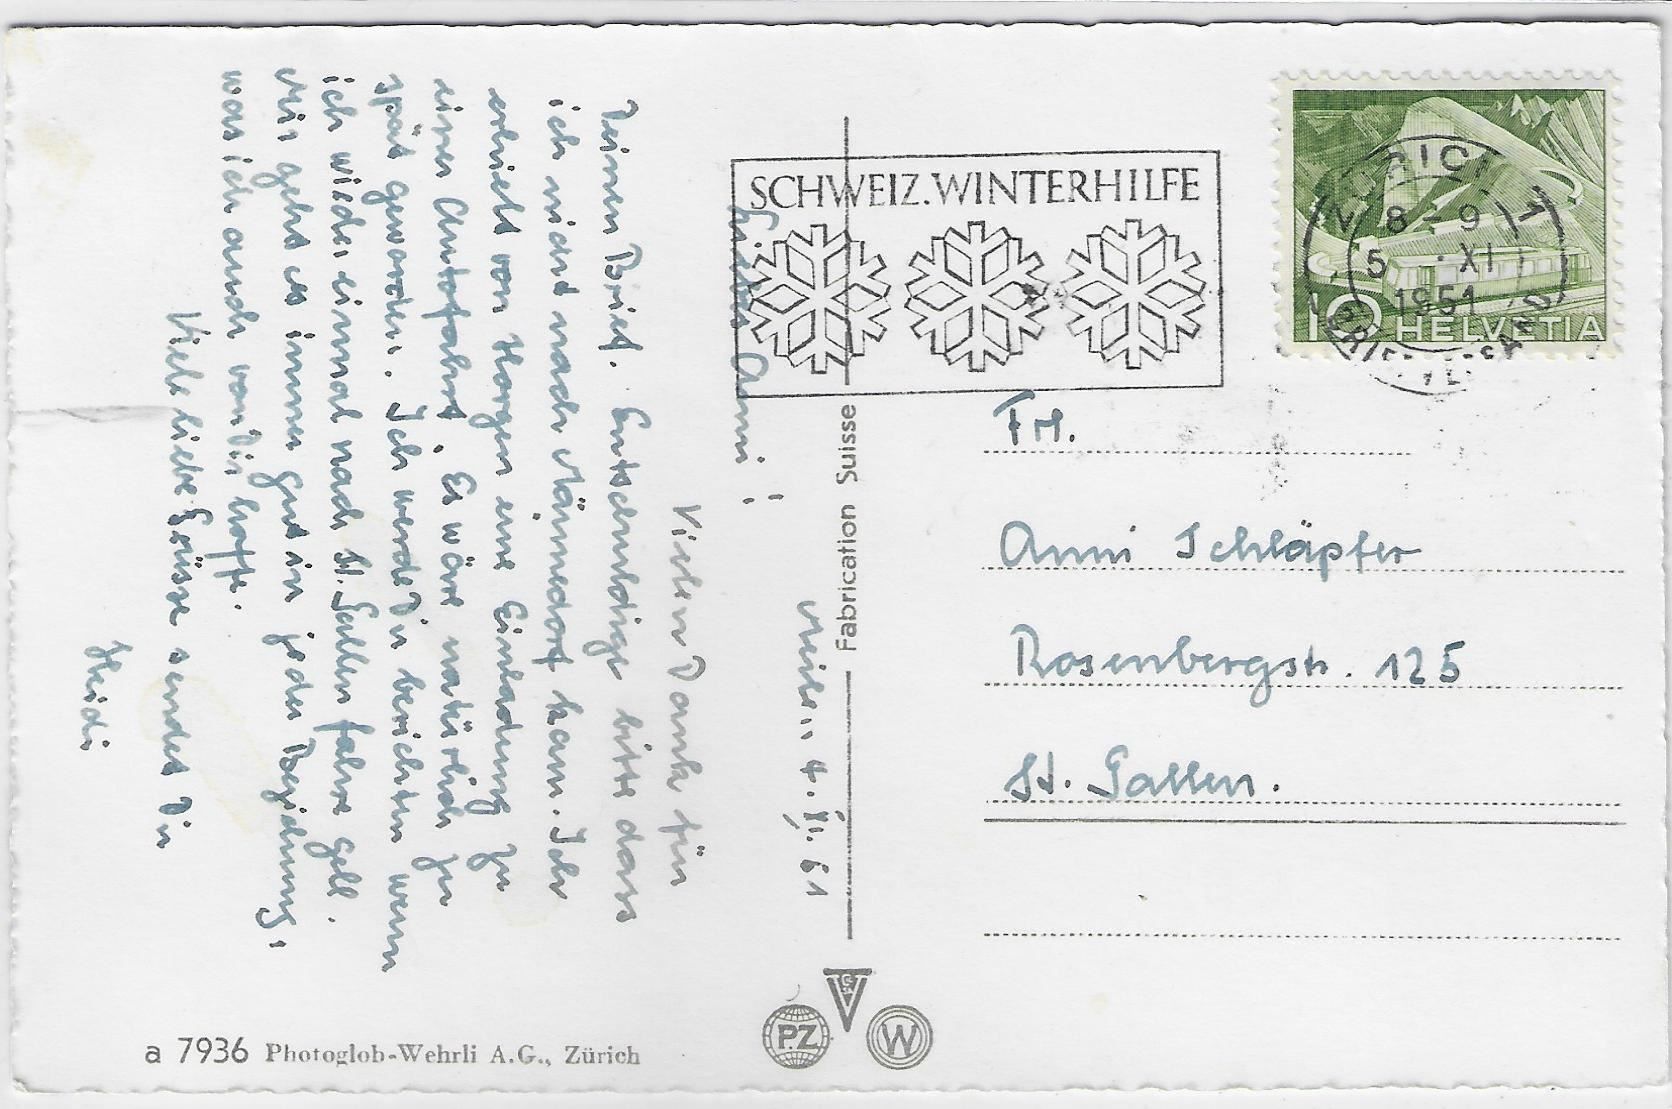 Meilen, 4. XI. 51
Liebes Anni!
Vielen Dank für
Deinen Brief. Entschuldige bitte dass
ich nicht nach Männedorf kam. Ich
erhielt von Horgen eine Einladung zu
einer Autofahrt. Es wäre natürlich zu
spät geworden. Ich werde Dir berichten wenn
ich wieder einmal nach St. Gallen fahre gell.
Mir geht es immer gut in jeder Beziehung,
was ich auch von Dir hoffe.
Viele liebe Grüsse sendet Dir
Heidi
a 7936 Photoglob-Wehrli A.G., Zürich
SCHWEIZ. WINTERHILFE
Fabrication Suisse
P.Z
W
ZÜRICH 1
8 - 9
5 . XI
1951
BRIEFVERSAND
10 HELVETIA
Frl.
Anni Schläpfer
Rosenbergstr. 125
St. Gallen.